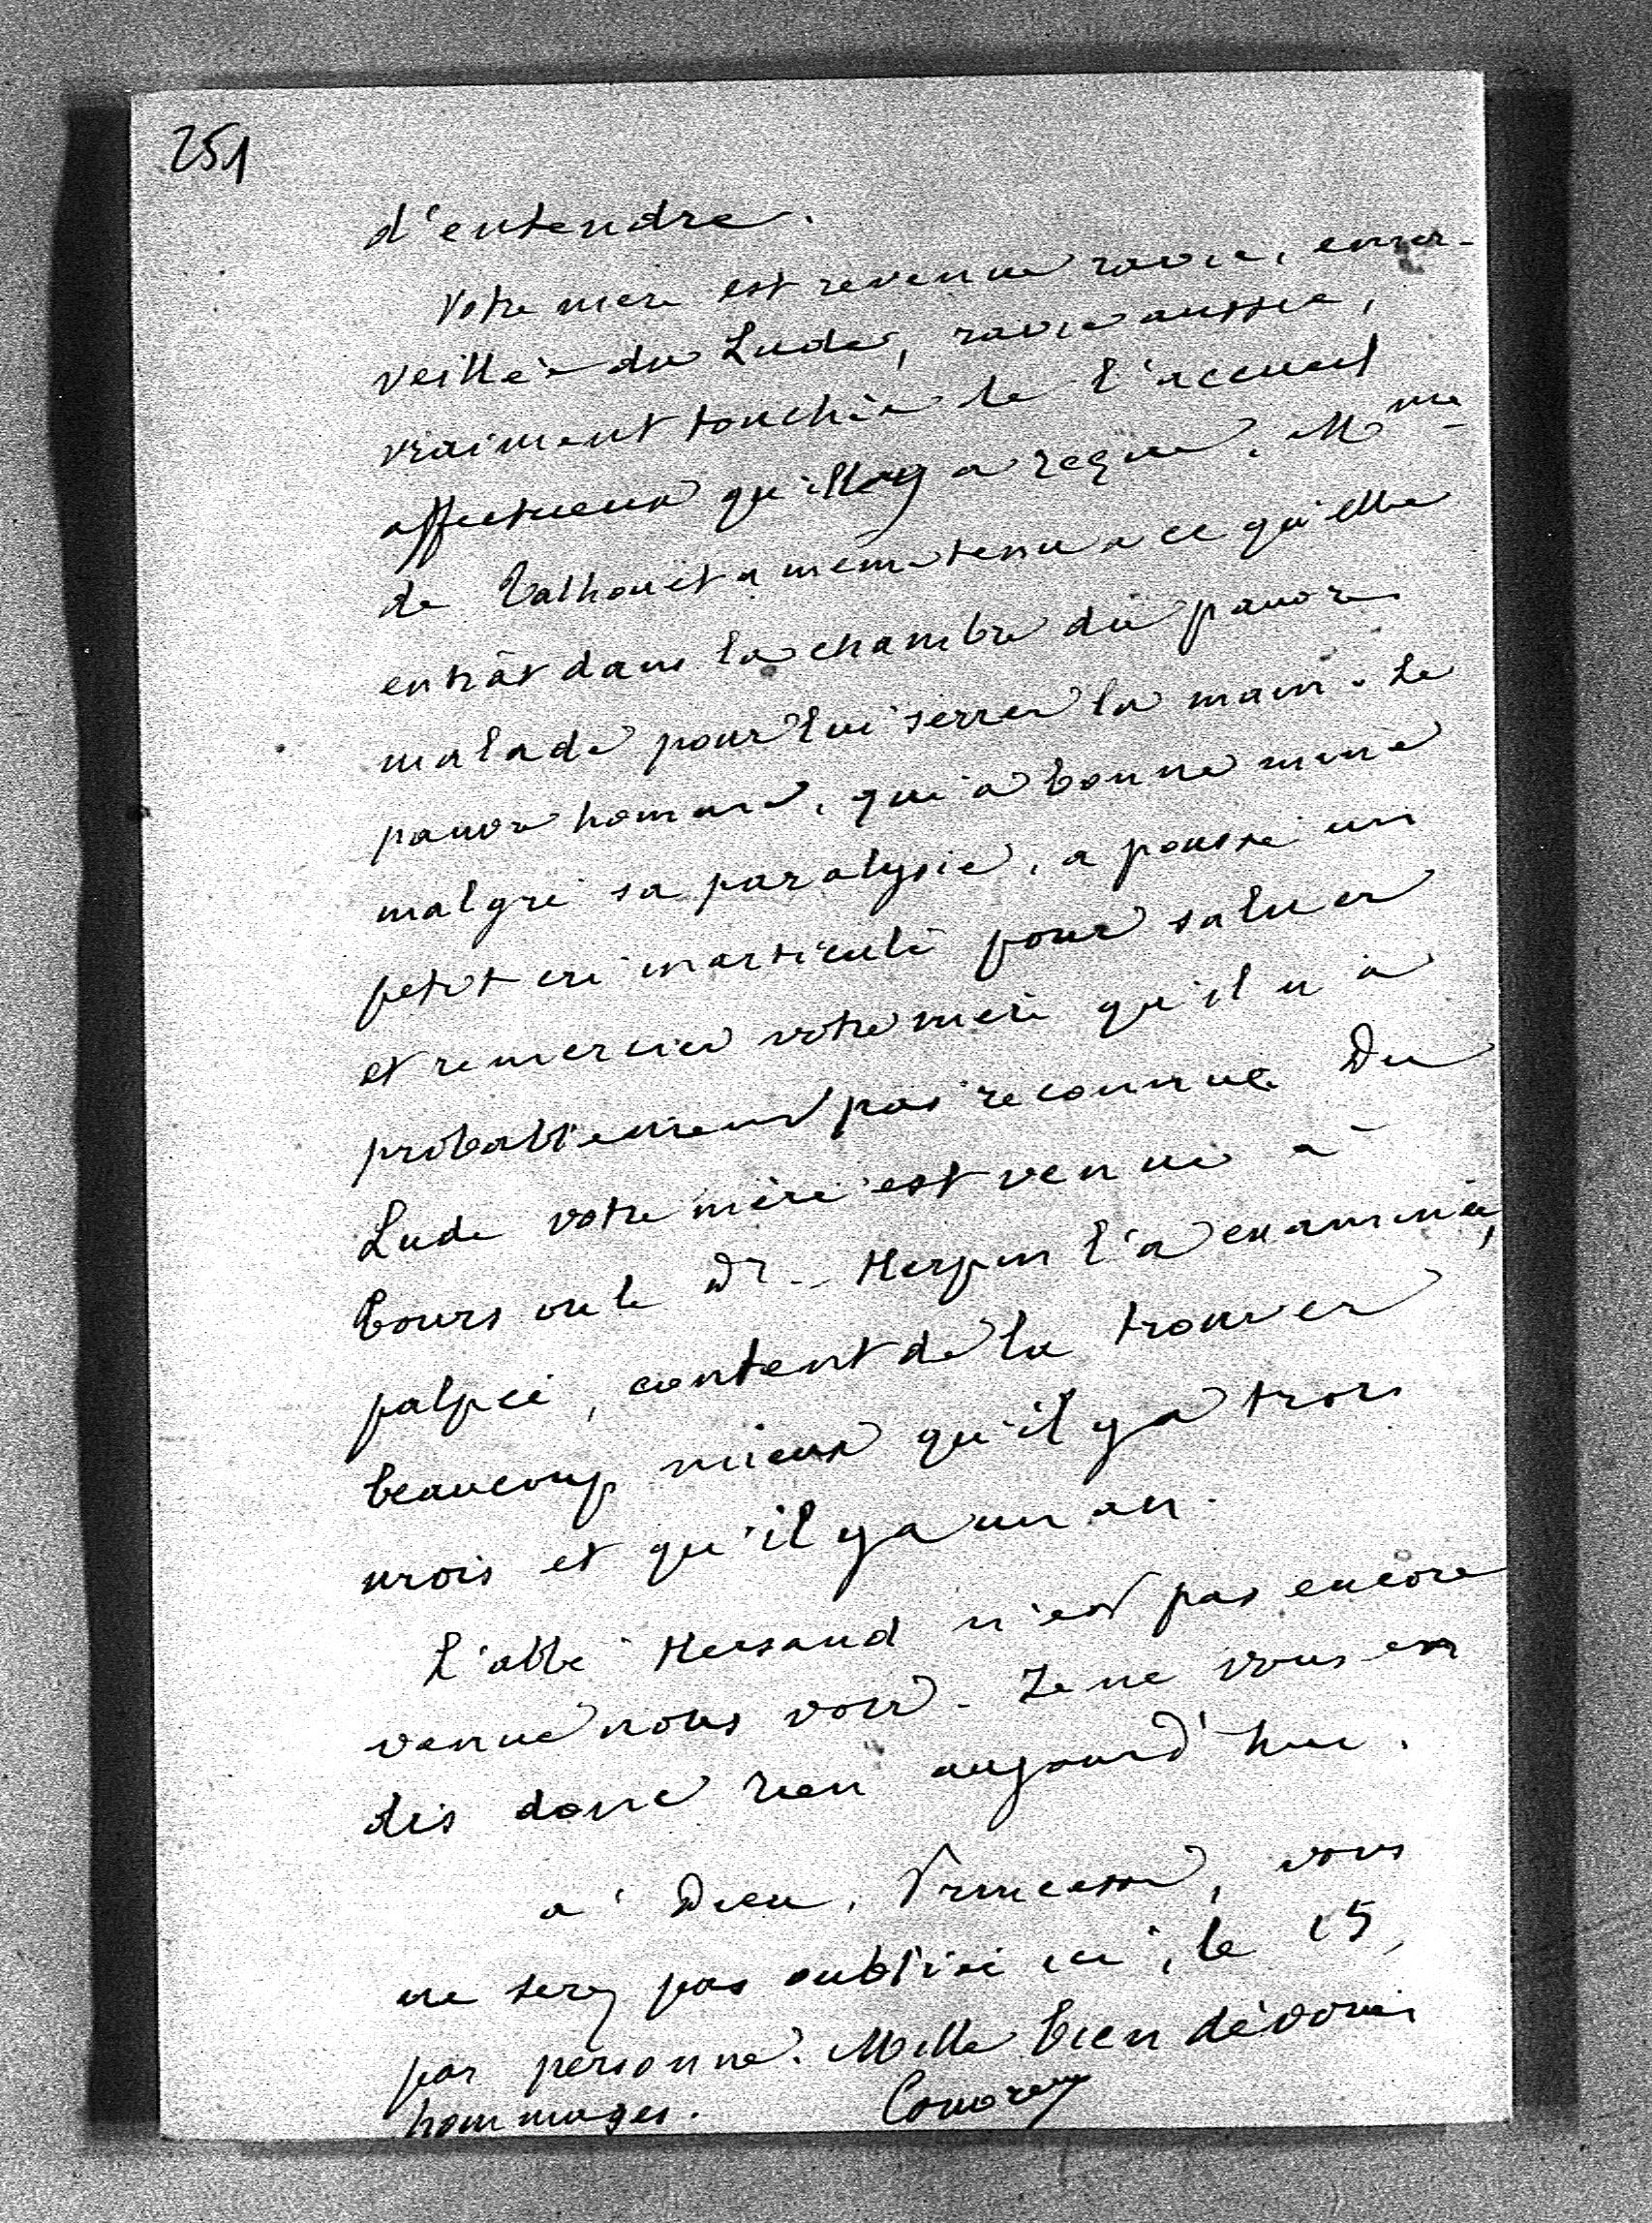 251
d'entendre.
Votre mère est revenue ravie, émer-
veillée du Lude, ravie aussi,
vraiment touchée de l'accueil
affectueux qu'elle y a reçue. Mme
de Talhouët a même tenu a ce qu'elle
entrât dans la chambre du pauvre
malade pour lui serrer la main. Le
pauvre homme, qui a bonne mine
malgré sa paralysie, a poussé un
petit cri inarticulé pour saluer
et remercier votre mère qu'il n'a
probablement pas reconnue. Du
Lude votre mère est venue à
Tours où le Dr. Herpin l'a examinée,
palpée, content de la trouver
beaucoup mieux qu'il y a trois
mois et qu'il y a un an.
L'abbé Mersaud n'est pas encore
venu nous voir. Je ne vous en
dis donc rien aujourd'hui.
a' Dieu, Princesse, vous
ne serez pas oubliée ici, le 15,
par personne. Mille bien dévoués
hommages.